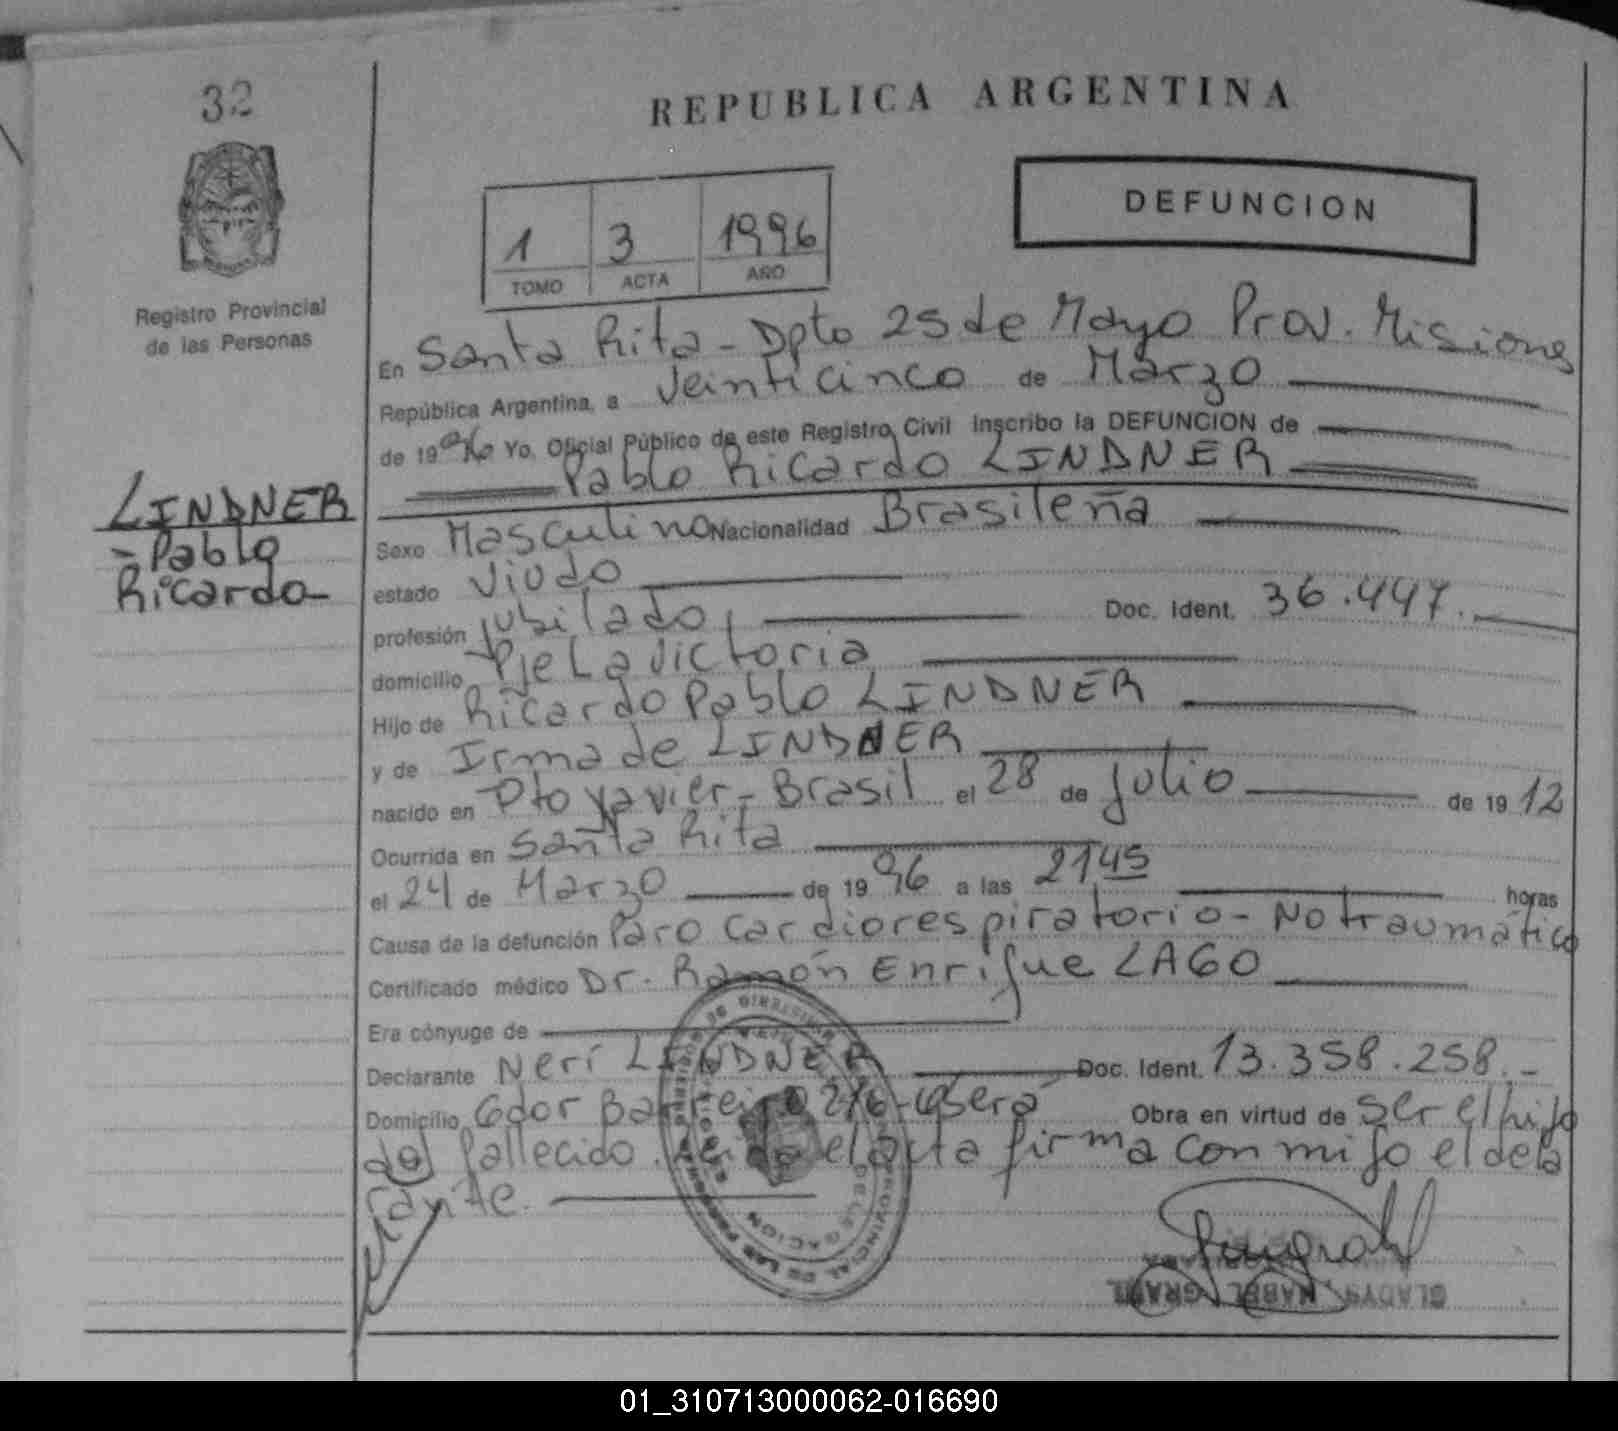 32
REPUBLICA ARGENTINA
DEFUNCION
1 3 1996
TOMO ACTA AÑO
Registro Provincial
de las Personas
En Santa Rita - Dpto 25 de Mayo Prov. Misiones
República Argentina, a veinticinco de Marzo
de 1996 Yo, Oficial Público de este Registro Civil Inscribo la DEFUNCION de
Pablo Ricardo LINDNER
LINDNER
- Pablo
Ricardo -
Sexo Masculino Nacionalidad Brasileña
estado Viudo
profesión jubilado, Doc. Ident. 36.447.
domicilio Pje La victoria
Hijo de Ricardo Pablo LINDNER
y de Irma de LINDNER
nacido en Pto Xavier - Brasil el 28 de julio de 1912
Ocurrida en Santa Rita
el 24 de Marzo de 1996 a las 2145 horas
Causa de la defunción Paro Cardiorespiratorio - No traumático
Certificado médico Dr. Ramón Enrique LAGO
Era cónyuge de
Declarante Neri LINDNER Doc. Ident. 13.358.258.-
Domicilio Gdor Barreiro Obra en virtud de ser el hijo
del fallecido. el acta firma conmigo el decla
rante.
GLADYS MABEL
01_310713000062-016690